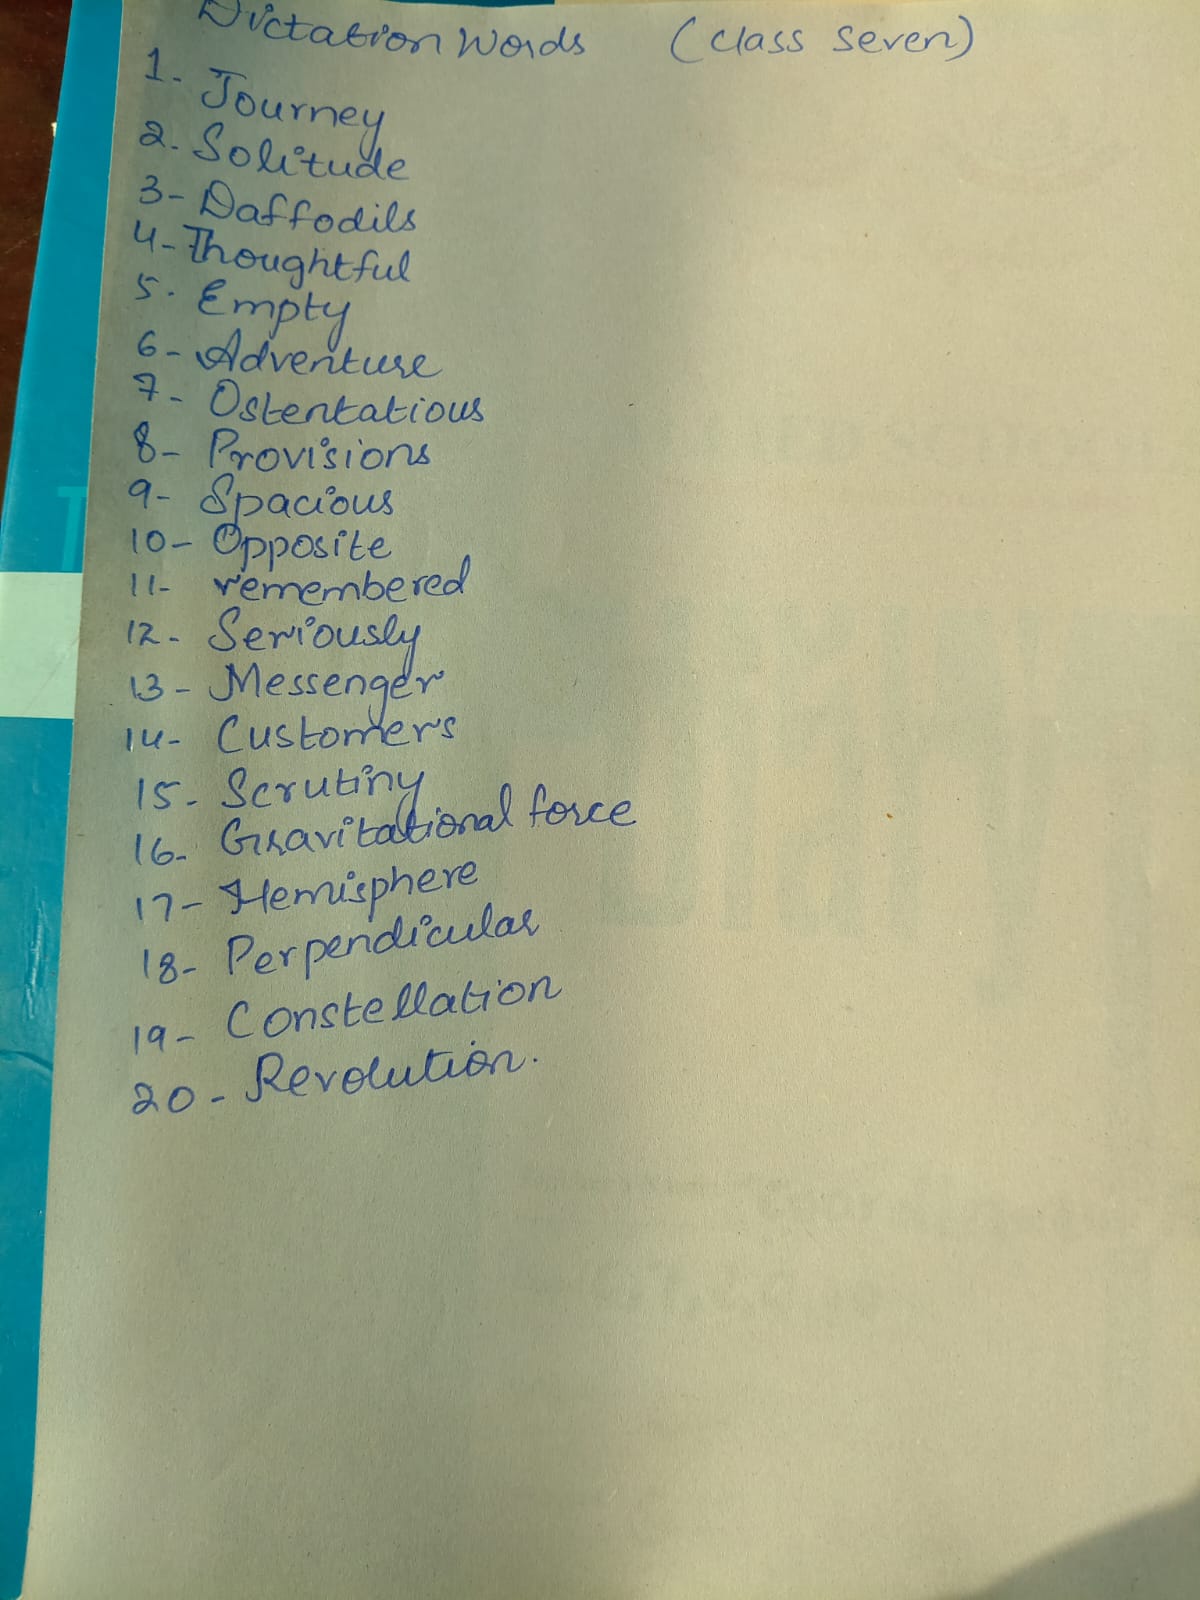 Dictation Words (Class Seven)
1- Journey
2. Solitude
3- Daffodils
4- Thoughtful
5. Empty
6- Adventure
7- Ostentatious
8- Provisions
9- Spacious
10- Opposite
11- remembered
12- Seriously
13- Messenger
14- Customers
15- Scrutiny
16- Gravitational force
17- Hemisphere
18- Perpendicular
19- Constellation
20- Revolution.